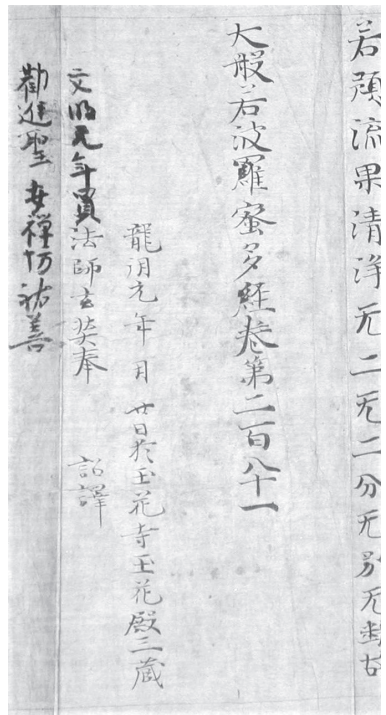 若預流果清淨无二无二分无別无斷故
大般若波羅蜜多經卷第二百八十一
龍朔元年 月廿日於玉花寺玉花殿三藏
法師玄奘奉 詔譯
文明元年買
勸進聖 禅坊祐善